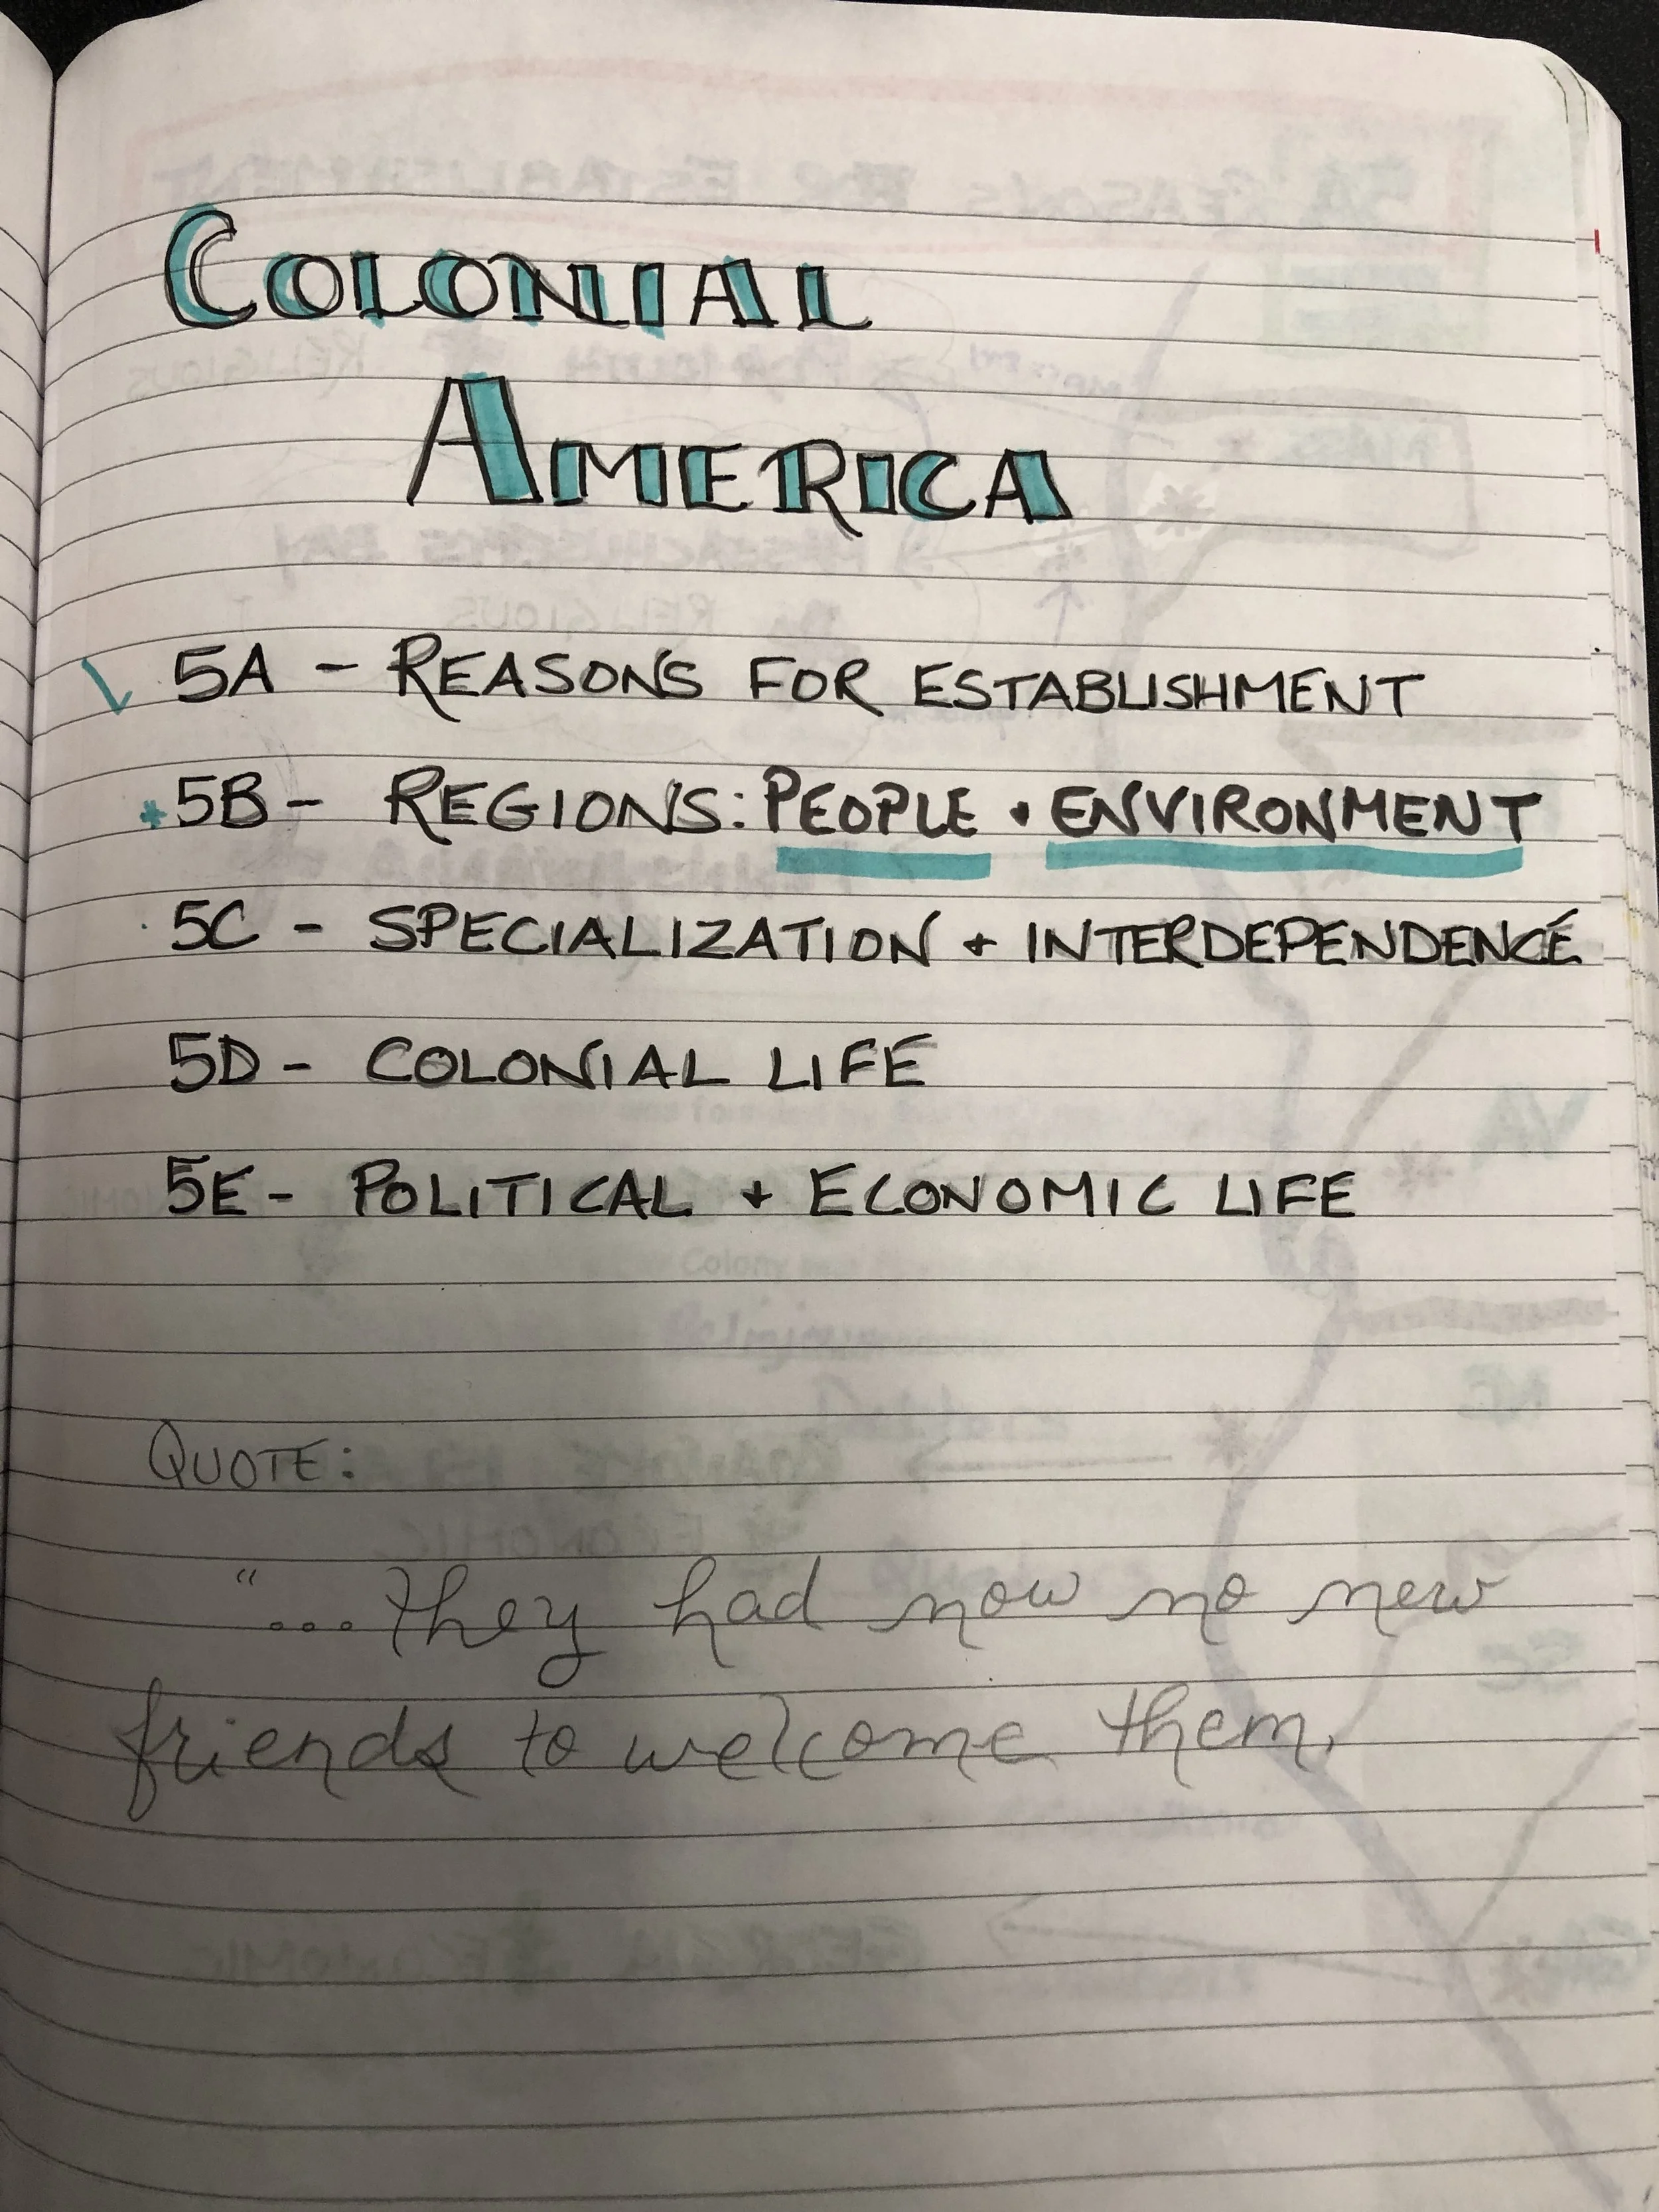 COLONIAL
AMERICA
5A - REASONS FOR ESTABLISHMENT
* 5B - REGIONS: PEOPLE + ENVIRONMENT
5C - SPECIALIZATION + INTERDEPENDENCE
5D - COLONIAL LIFE
5E - POLITICAL + ECONOMIC LIFE
QUOTE:
"...they had now no new
friends to welcome them,